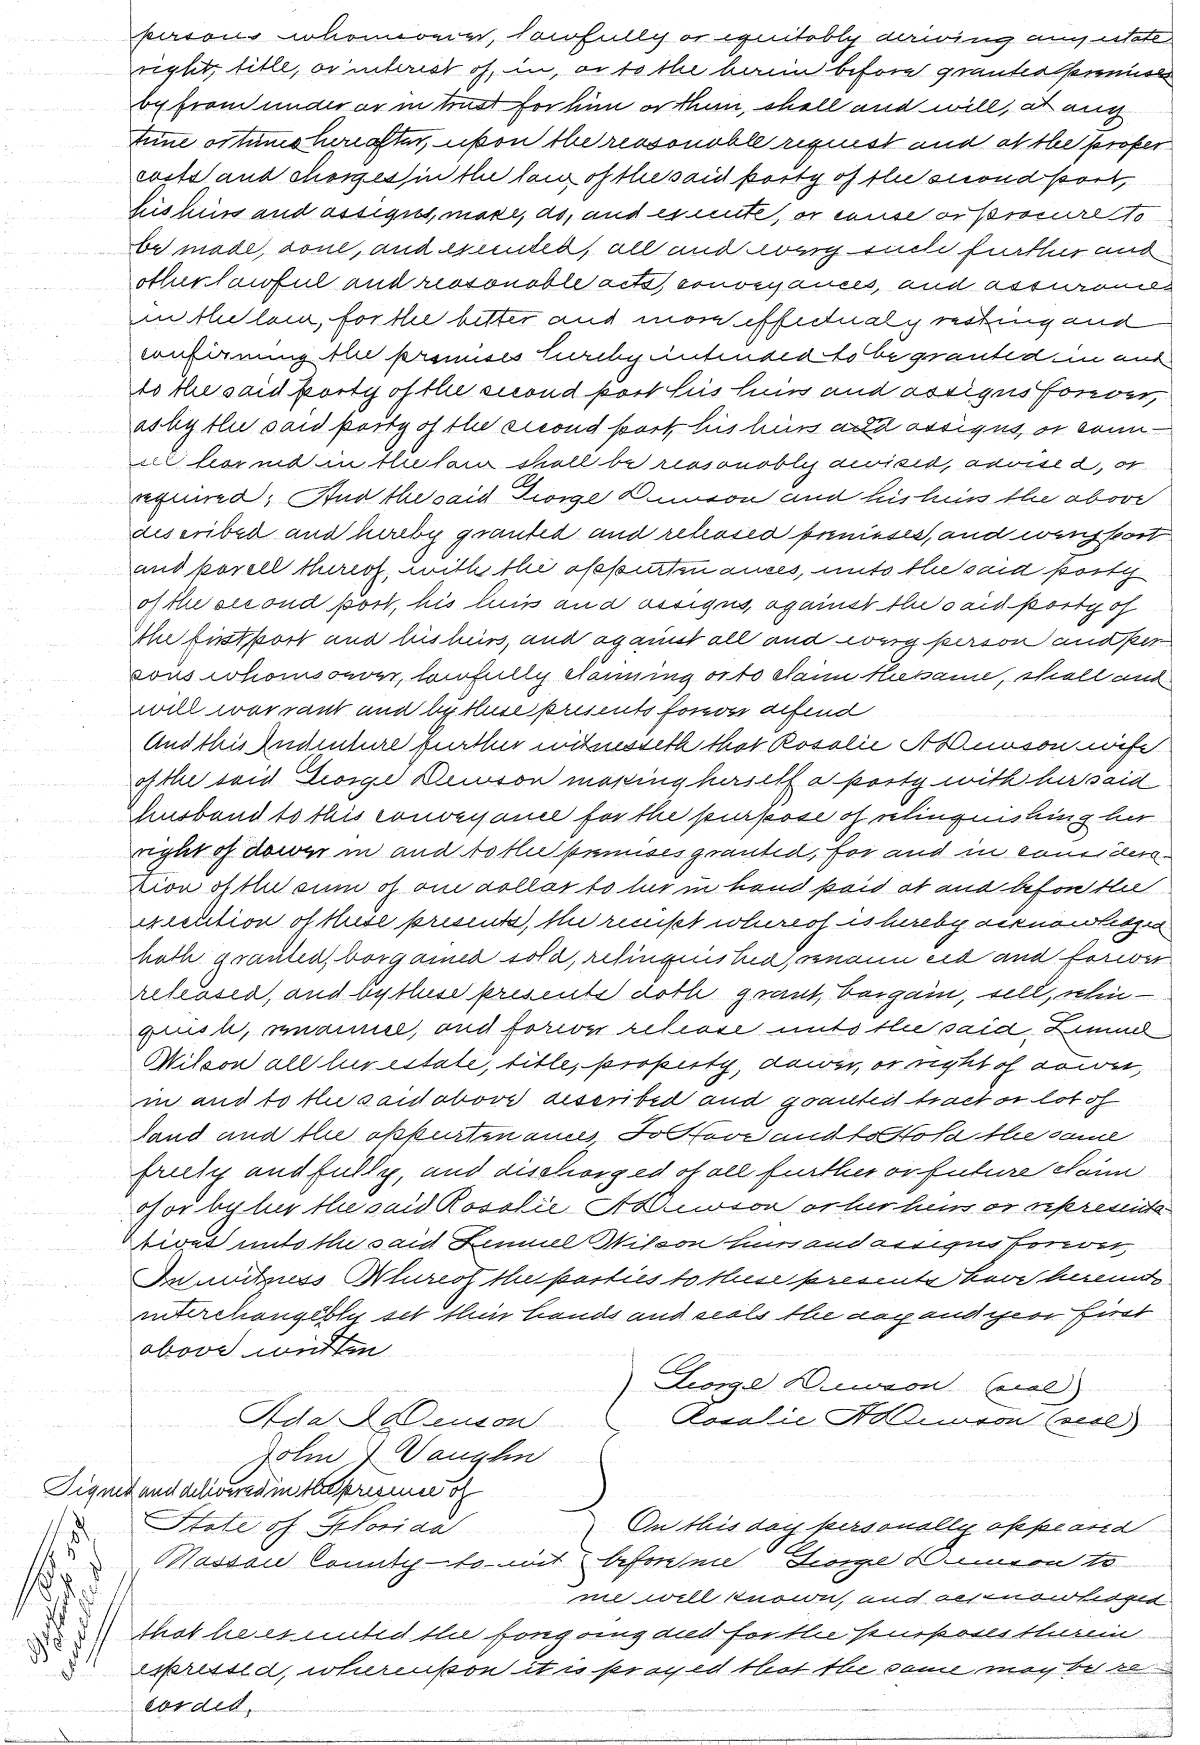 persons whomsoever, lawfully or equitably deriving any estate
right, title, or interest of, in, or to the herein before granted premises
by from under or in trust for him or them, shall and will, at any
time or times hereafter, upon the reasonable request and at the proper
costs and charges in the law, of the said party of the second part,
his heirs and assigns, make, do, and execute, or cause or procure to
be made, done, and executed, all and every such further and
other lawful and reasonable acts, conveyances, and assurances
in the law, for the better and more effectualy vesting and
confirming the premises hereby intended to be granted in and
to the said party of the second part his heirs and assigns forever,
as by the said party of the second part, his heirs and assigns, or coun-
sel learned in the law shall be reasonably devised, advised, or
required; And the said George Dewson and his heirs the above
described and hereby granted and released premises, and every part
and parcell thereof, with the appurtenances, unto the said party
of the second part, his heirs and assigns, against the said party of
the first part and his heirs, and against all and every person and per-
sons whomsoever, lawfully claiming or to claim the same, shall and
will warrant and by these presents forever defend
And this Indenture further witnesseth that Rosalie A Dewson wife
of the said George Dewson making herself a party with her said
husband to this conveyance for the purpose of relinquishing her
right of dower in and to the premises granted, for and in considera-
tion of the sum of one dollar to her in hand paid at and before the
execution of these presents, the receipt whereof is hereby acknowledged
hath granted, bargained sold, relinquished, renounced and forever
released, and by these presents doth grant, bargain, sell, relin-
quish, renounce, and forever release unto the said, Lemuel
Wilson all her estate, title, property, dower, or right of dower,
in and to the said above described and granted tract or lot of
land and the appurtenances, To Have and to Hold the same
freely and fully, and discharged of all further or future claim
of or by her the said Rosalie A Dewson or her heirs or representa-
tives unto the said Lemuel Wilson heirs and assigns forever,
In witness Whereof the parties to these presents have hereunto
interchangebly set their hands and seals the day and year first
above written
George Dewson (seal)
Ada Dewson Rosalie A Dewson (seal)
John J Vaughn
Signed and delivered in the presence of
State of Florida On this day personally appeared
Nassau County to-wit before me George Dewson to
me well known, and acknowledged
that he executed the foregoing deed for the purposes therein
expressed, whereupon it is prayed that the same may be re-
corded.